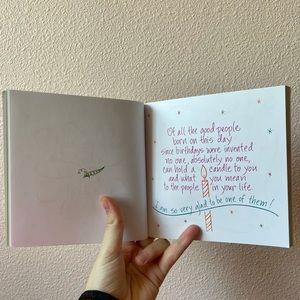 Of all the good people
born on this day
since birthdays were invented
no one, absolutely no one,
can hold a candle to you
and what you mean
to the people in your life.
I am so very glad to be one of them!